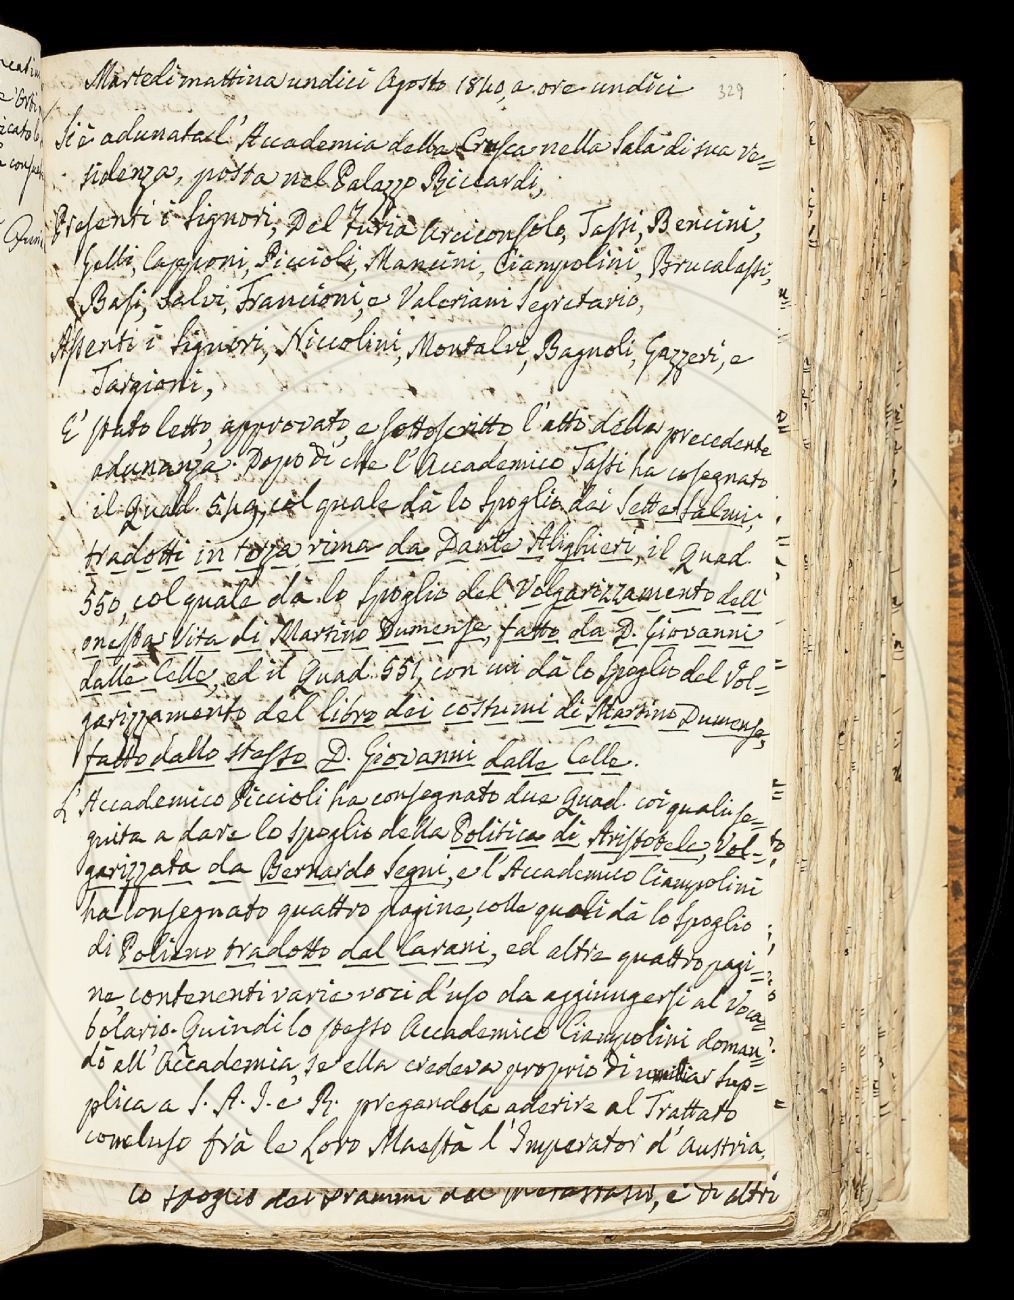 Martedi mattina undici Agosto 1840, a ore undici
329
Si è adunata l'Accademia della Crusca nella Sala di sua re=
sidenza, posta nel Palazzo Riccardi,
Presenti i Signori, Del Furia Arciconsolo, Tassi, Bencini,
Gelli, Capponi, Piccioli, Mancini, Ciampolini, Brucalassi,
Basi, Salvi, Francioni, e Valeriani Segretario,
Assenti i Signori, Niccolini, Montalvi, Bagnoli, Gazzeri, e
Targioni,
E' stato letto, approvato, e sottoscritto l'atto della precedente
adunanza. Dopo di che l'Accademico Tassi ha cosegnato
il Quad. 549, col quale dà lo Spoglio dei Sette Salmi,
tradotti in terza rima da Dante Alighieri, il Quad.
550, col quale dà lo Spoglio del Volgarizzamento dell'
onesta Vita di Martino Dumense, fatto da D. Giovanni
dalle Celle, ed il Quad. 551, con cui dà lo Spoglio del Vol=
garizzamento del libro dei costumi di Martino Dumense,
fatto dallo stesso D. Giovanni dalle Celle.
L'Accademico Piccioli ha consegnato due Quad. coi quali se=
guita a dare lo Spoglio della Politica di Aristotele, Vol=
garizzata da Bernardo Segni, e l'Accademico Ciampolini
ha consegnato quattro pagine, colle quali dà lo Spoglio
di Polieno tradotto dal Carani, ed altre quattro pagi=
ne, contenenti varie voci d'uso da aggiungersi al Voca=
bolario. Quindi lo stesso Accademico Ciampolini doman=
dò all'Accademia, se ella credeva proprio di umiliar sup=
plica a S. A. I. e R. pregandola aderire al Trattato
concluso frà le Loro Maestà l'Imperator d'Austria,
lo spoglio dei Drammi del Metastasio, e di altri